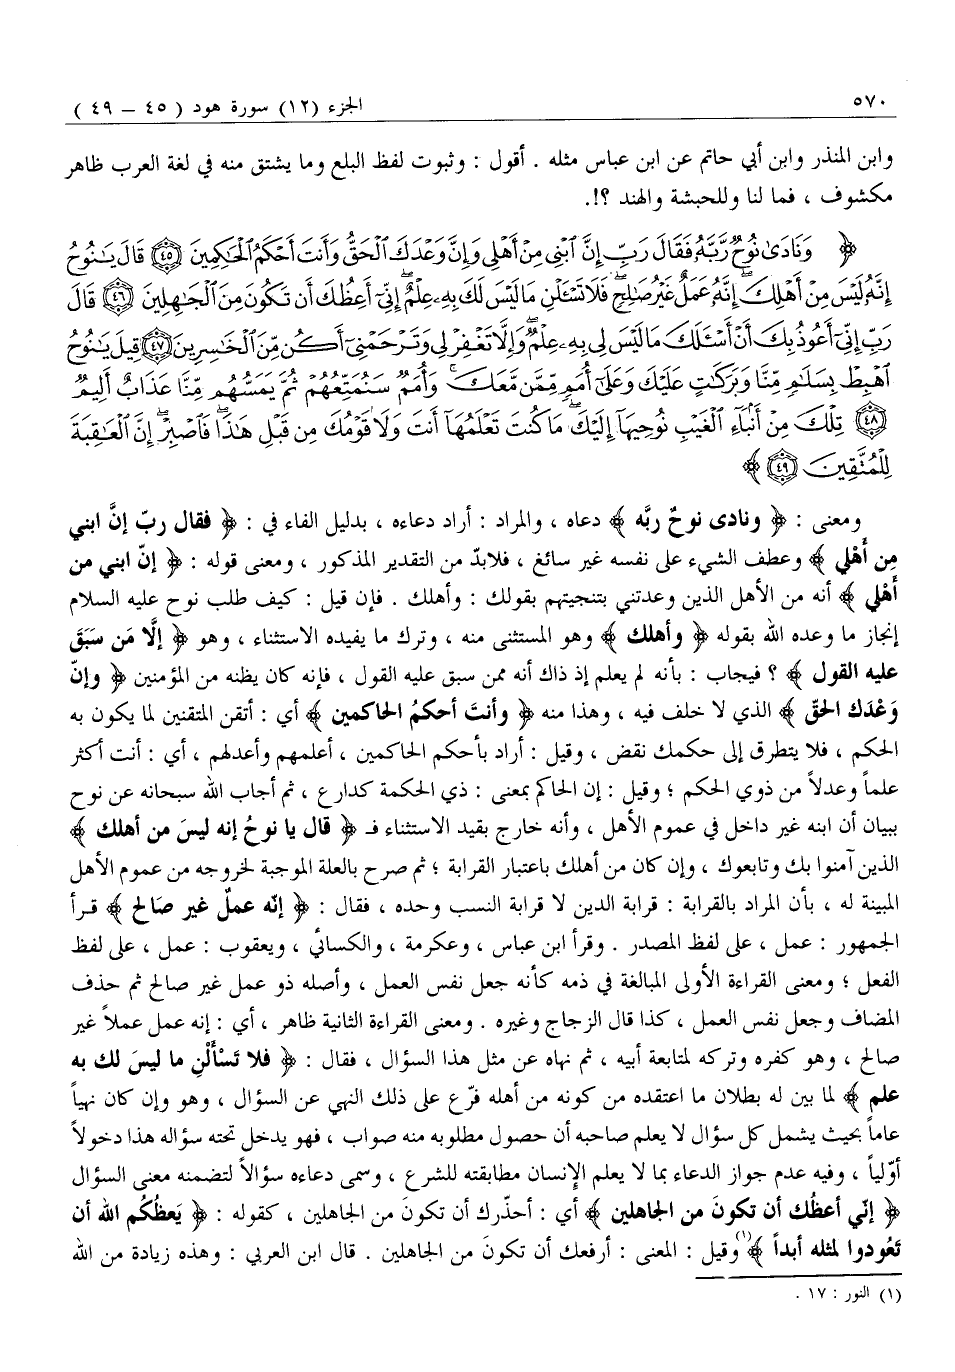 ٥٧٠ الجزء (١٢) سورة هود ( ٤٥ – ٤٩ )
وابن المنذر وابن أبي حاتم عن ابن عباس مثله . أقول : وثبوت لفظ البلع وما يشتق منه في لغة العرب ظاهر
مكشوف ، فما لنا وللحبشة والهند ؟!.
﴿ وَنَادَىٰ نُوحٌ رَّبَّهُ فَقَالَ رَبِّ إِنَّ ٱبْنِي مِنْ أَهْلِي وَإِنَّ وَعْدَكَ ٱلْحَقُّ وَأَنتَ أَحْكَمُ ٱلْحَاكِمِينَ ﴿٤٥﴾ قَالَ يَا نُوحُ
إِنَّهُ لَيْسَ مِنْ أَهْلِكَ إِنَّهُ عَمَلٌ غَيْرُ صَالِحٍ فَلَا تَسْئَلْنِ مَا لَيْسَ لَكَ بِهِ عِلْمٌ إِنِّي أَعِظُكَ أَن تَكُونَ مِنَ ٱلْجَاهِلِينَ ﴿٤٦﴾ قَالَ
رَبِّ إِنِّي أَعُوذُ بِكَ أَنْ أَسْئَلَكَ مَا لَيْسَ لِي بِهِ عِلْمٌ وَإِلَّا تَغْفِرْ لِي وَتَرْحَمْنِي أَكُن مِّنَ ٱلْخَاسِرِينَ ﴿٤٧﴾ قِيلَ يَا نُوحُ
ٱهْبِطْ بِسَلَامٍ مِّنَّا وَبَرَكَاتٍ عَلَيْكَ وَعَلَىٰ أُمَمٍ مِّمَّن مَّعَكَ وَأُمَمٌ سَنُمَتِّعُهُمْ ثُمَّ يَمَسُّهُم مِّنَّا عَذَابٌ أَلِيمٌ
﴿٤٨﴾ تِلْكَ مِنْ أَنبَاءِ ٱلْغَيْبِ نُوحِيهَا إِلَيْكَ مَا كُنتَ تَعْلَمُهَا أَنتَ وَلَا قَوْمُكَ مِن قَبْلِ هَٰذَا فَٱصْبِرْ إِنَّ ٱلْعَاقِبَةَ
لِلْمُتَّقِينَ ﴿٤٩﴾ ﴾
ومعنى : ﴿ ونادى نوحٌ ربَّه ﴾ دعاه ، والمراد : أراد دعاءه ، بدليل الفاء في : ﴿ فقال ربّ إنَّ ابني
مِن أَهْلي ﴾ وعطف الشيء على نفسه غير سائغ ، فلابدّ من التقدير المذكور ، ومعنى قوله : ﴿ إنّ ابني من
أَهْلي ﴾ أنه من الأهل الذين وعدتني بتنجيتهم بقولك : وأهلك . فإن قيل : كيف طلب نوح عليه السلام
إنجاز ما وعده الله بقوله ﴿ وأهلك ﴾ وهو المستثنى منه ، وترك ما يفيده الاستثناء ، وهو ﴿ إلَّا مَن سَبَقَ
عليه القول ﴾ ؟ فيجاب : بأنه لم يعلم إذ ذاك أنه ممن سبق عليه القول ، فإنه كان يظنه من المؤمنين ﴿ وإنّ
وَعْدَك الحَقّ ﴾ الذي لا خلف فيه ، وهذا منه ﴿ وأنتَ أحكمُ الحاكمين ﴾ أي : أتقن المتقنين لما يكون به
الحكم ، فلا يتطرق إلى حكمك نقض ، وقيل : أراد بأحكم الحاكمين ، أعلمهم وأعدلهم ، أي : أنت أكثر
علماً وعدلاً من ذوي الحكم ؛ وقيل : إن الحاكم بمعنى : ذي الحكمة كدارع ، ثم أجاب الله سبحانه عن نوح
ببيان أن ابنه غير داخل في عموم الأهل ، وأنه خارج بقيد الاستثناء فـ ﴿ قال يا نوحُ إنه ليسَ من أهلك ﴾
الذين آمنوا بك وتابعوك ، وإن كان من أهلك باعتبار القرابة ؛ ثم صرح بالعلة الموجبة لخروجه من عموم الأهل
المبينة له ، بأن المراد بالقرابة : قرابة الدين لا قرابة النسب وحده ، فقال : ﴿ إنّه عملٌ غير صَالح ﴾ قرأ
الجمهور : عمل ، على لفظ المصدر . وقرأ ابن عباس ، وعكرمة ، والكسائي ، ويعقوب : عمل ، على لفظ
الفعل ؛ ومعنى القراءة الأولى المبالغة في ذمه كأنه جعل نفس العمل ، وأصله ذو عمل غير صالح ثم حذف
المضاف وجعل نفس العمل ، كذا قال الزجاج وغيره . ومعنى القراءة الثانية ظاهر ، أي : إنه عمل عملاً غير
صالح ، وهو كفره وتركه لمتابعة أبيه ، ثم نهاه عن مثل هذا السؤال ، فقال : ﴿ فلا تَسْأَلْنِ ما ليسَ لك به
علم ﴾ لما بين له بطلان ما اعتقده من كونه من أهله فرّع على ذلك النهي عن السؤال ، وهو وإن كان نهياً
عاماً بحيث يشمل كل سؤال لا يعلم صاحبه أن حصول مطلوبه منه صواب ، فهو يدخل تحته سؤاله هذا دخولاً
أوّلياً ، وفيه عدم جواز الدعاء بما لا يعلم الإنسان مطابقته للشرع ، وسمى دعاءه سؤالاً لتضمنه معنى السؤال
﴿ إنّي أعظُك أن تكونَ من الجاهلين ﴾ أي : أحذّرك أن تكونَ من الجاهلين ، كقوله : ﴿ يَعظُكُم الله أن
تَعُودوا لمثله أبداً ﴾(١) وقيل : المعنى : أرفعك أن تكونَ من الجاهلين . قال ابن العربي : وهذه زيادة من الله
(١) النور : ١٧ .